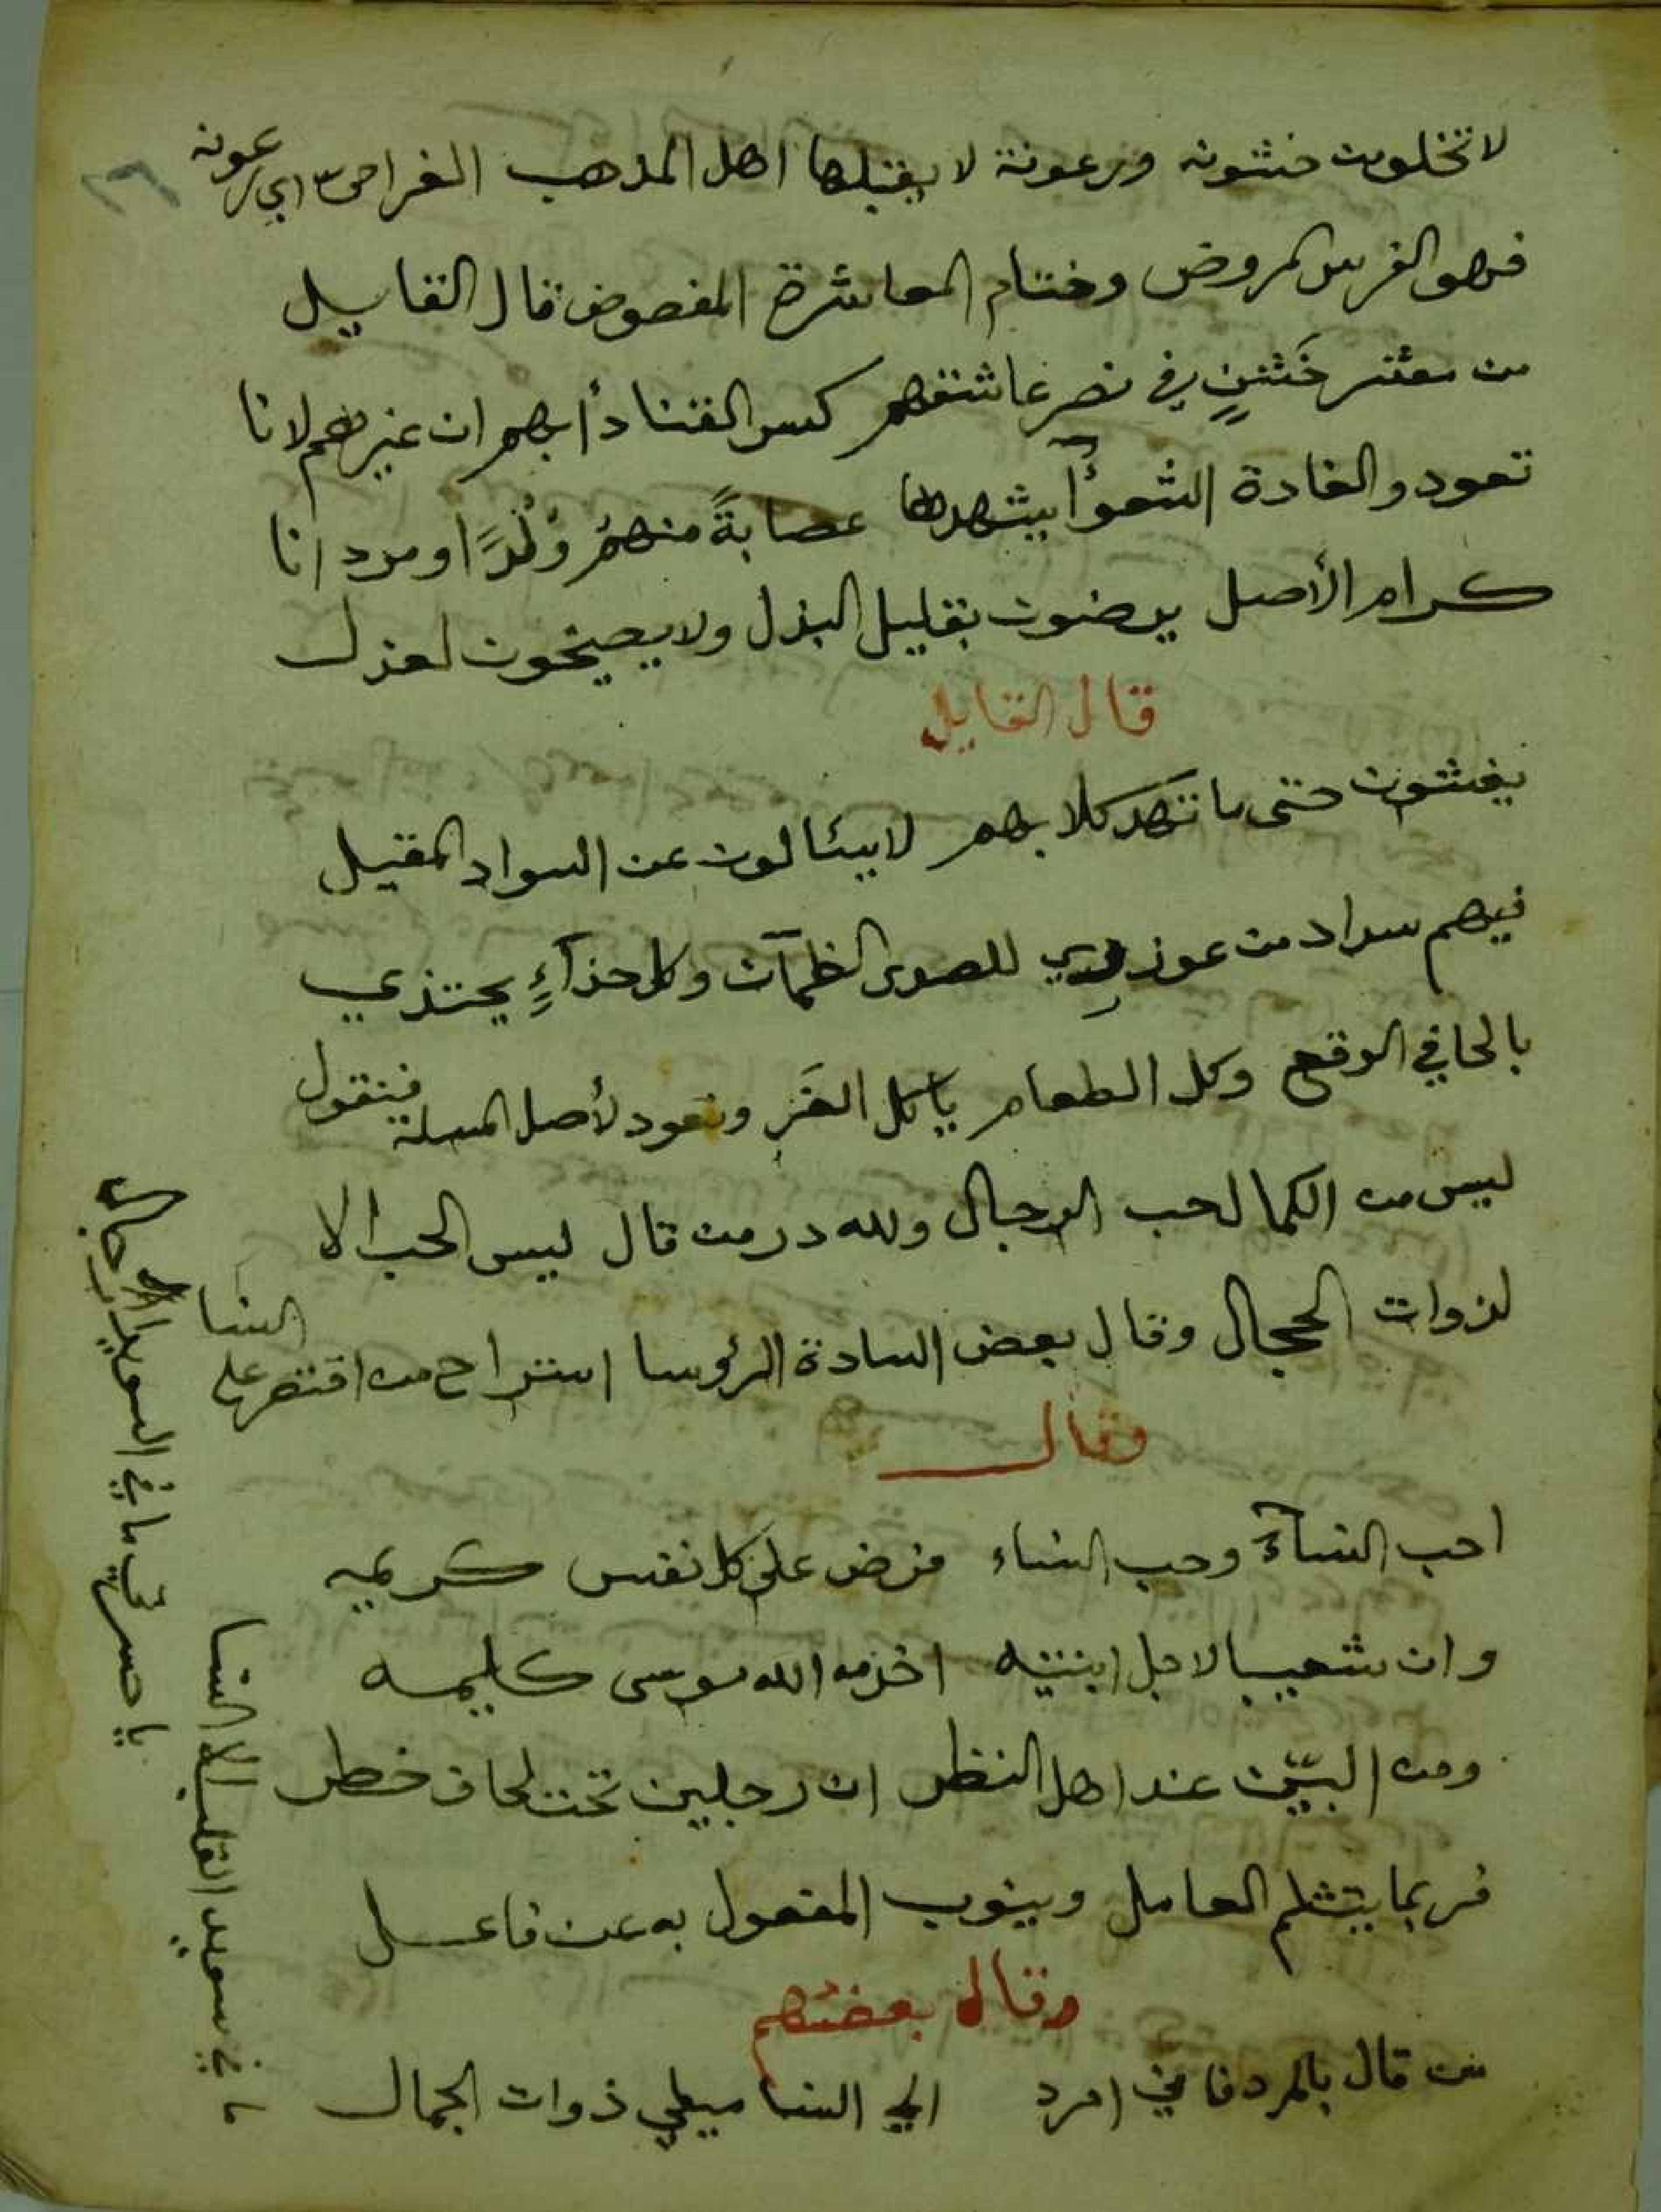 لا تخلو من خشونه ورعونة لا يقبلها اهل المذهب الغرامي اي رعونه
فهو الفرس المروض وختام المعاشرة المفصوض قال القايل
من معشر خَشنٍ في نصر عاشقهم كسر القنا دأبهم ان غيرهم لانا
تعود والغادة الشعوآ يشهدها عصابةً منهمُ وُلْدًا ومردانا
كرام الأصل يرضون بقليل البذل ولا يصيخون لعذل
قال القايل
يغشون حتى ما تهر كلابهم لا يسالون عن السواد المقبل
فيهم سداد من عوز وري للصدى الظمآن وكل حذآءٍ يحتذي
بالحافي الوقع وكل الطعام ياكل الغَر ونعود لأصل المسلة فنقول
ليس من الكمال حب الرجال ولله در من قال ليس الحب الا
لذوات الحجال وقال بعض السادة الرؤسا استراح من اقتصر على النسا
وقال
احب النسآء وحب النساء فرض على كل نفس كريمه
وان شعيبا لاجل ابنتيه اخدمه الله موسى كليمه
ومن البيّن عند اهل النظر ان رجلين تحت لحاف خطر
فربما يتثلم العامل وينوب المفعول به عن فاعل
وقال بعضهم
من قال بالمرد فاني امرد الي النسا ميلي ذوات الجمال
ما في سويد القلب الا النسا
يا حسرتي ما في السويدا رجال